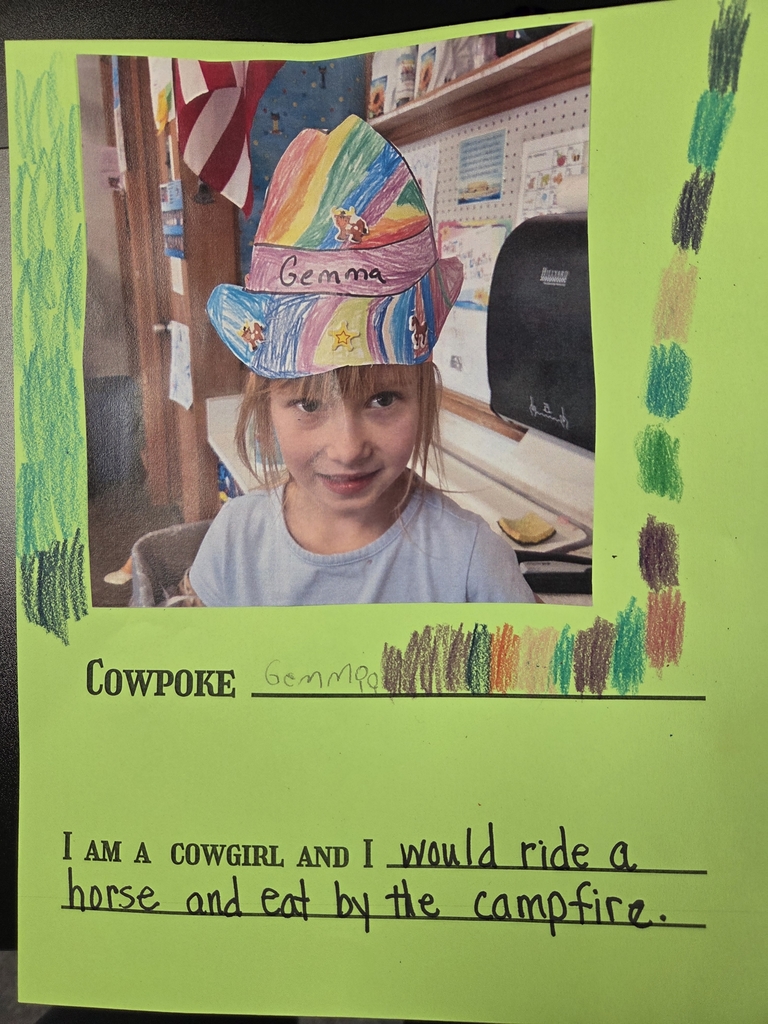 Gemma
COWPOKE Gemma
I AM A COWGIRL AND I would ride a
horse and eat by the campfire.